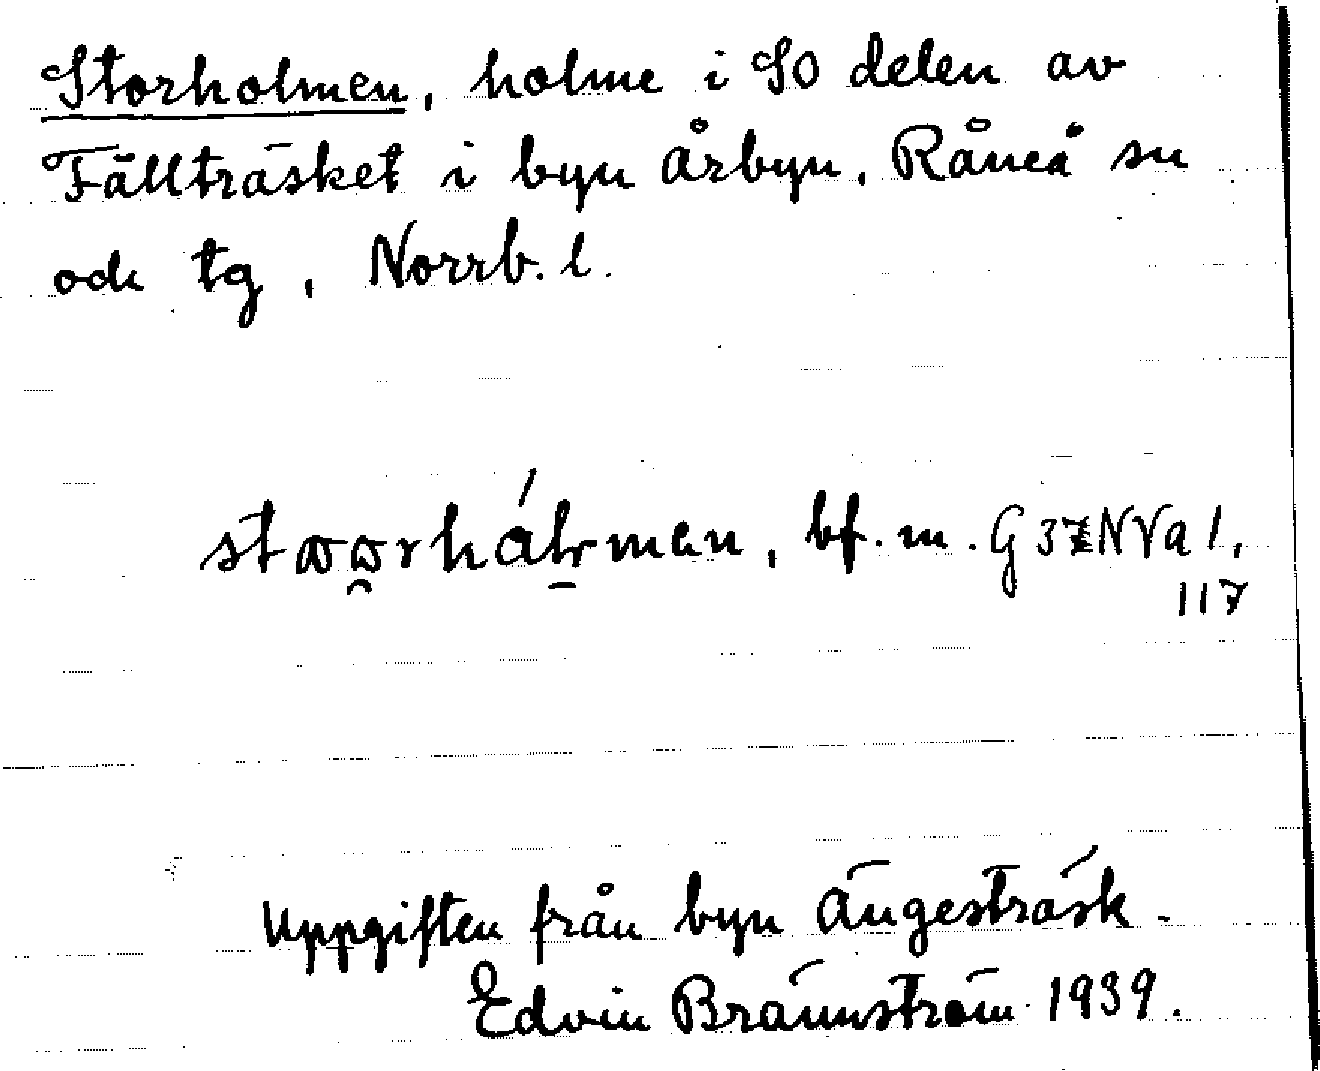 Storholmen, holme i SO delen av
Fällträsket i byn Årbyn, Råneå sn
och tg, Norrb. l.
bf. m. G 37 NVa 1,
117
Uppgiften från byn Ängesträsk.
Edvin Brännström 1939.